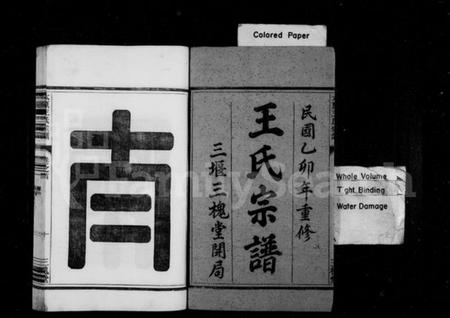 Colored Paper
民國乙卯年重修
王氏宗譜
三堰三槐堂開局
Whole Volume
Tight Binding
Water Damage
FamilySearch